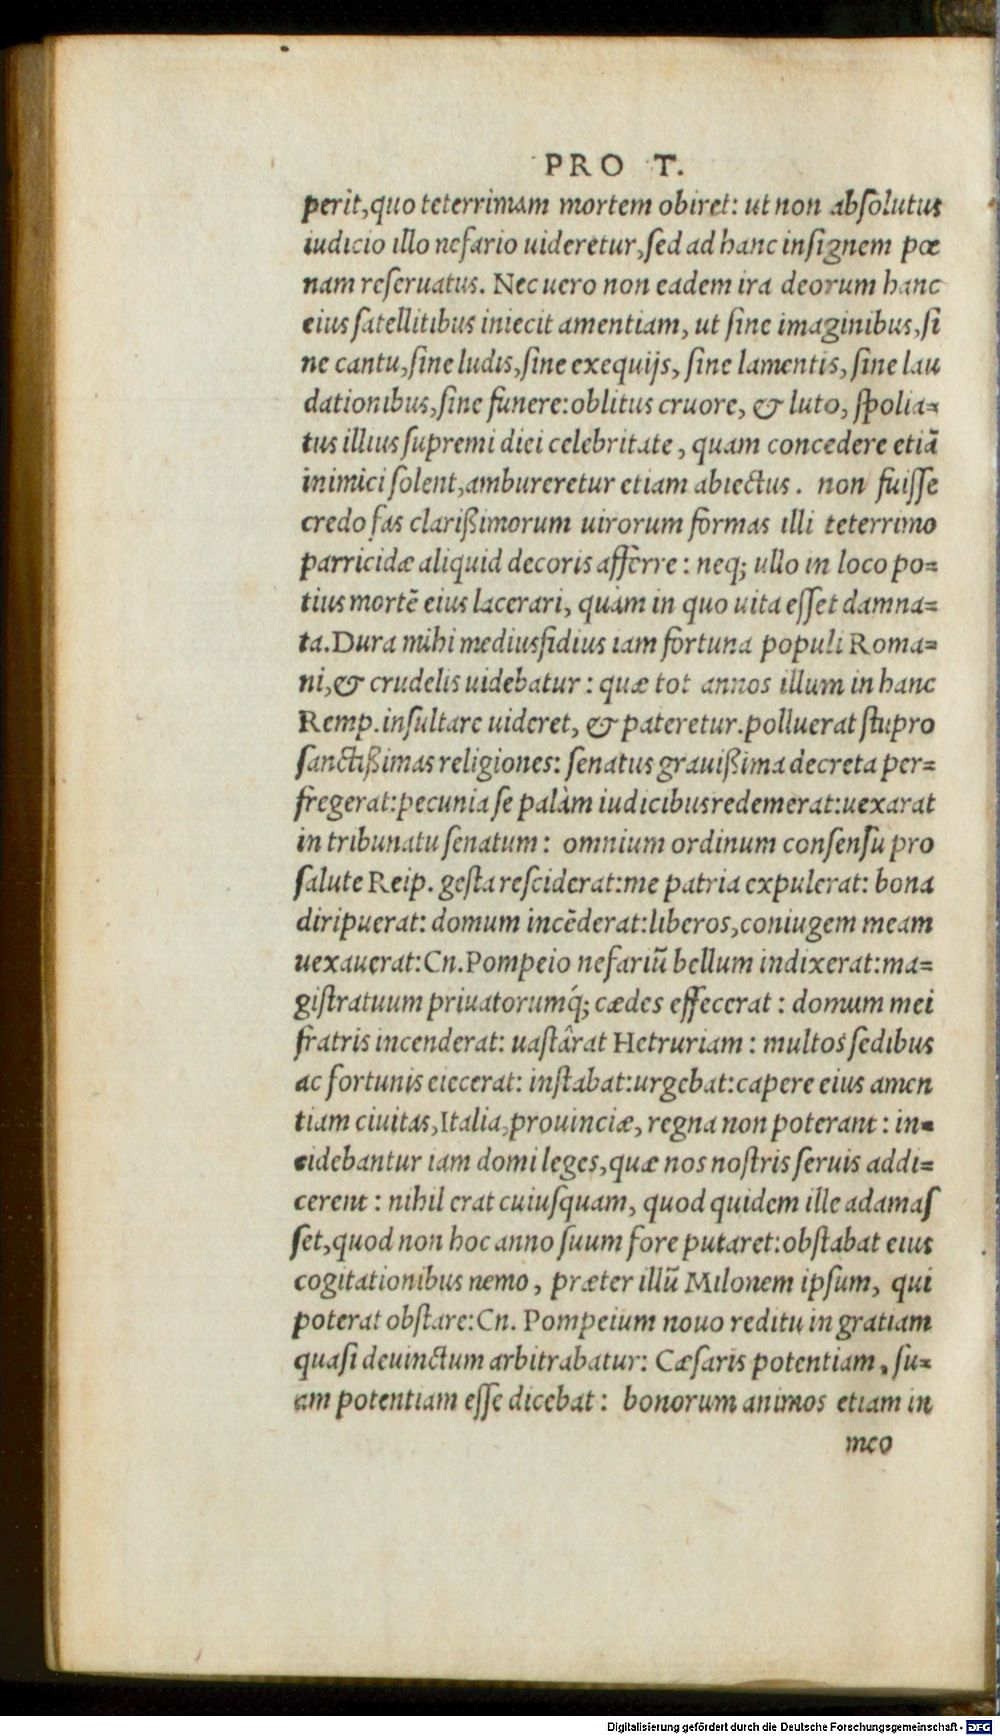 PRO T.
perit,quo teterrimam mortem obiret: ut non absolutus
iudicio illo nefario uideretur,sed ad hanc insignem pœ
nam reseruatus. Nec uero non eadem ira deorum hanc
eius satellitibus iniecit amentiam, ut sine imaginibus,si
ne cantu,sine ludis,sine exequijs, sine lamentis, sine lau
dationibus,sine funere:oblitus cruore, & luto, spolia=
tus illius supremi diei celebritate, quam concedere etiã
inimici solent,ambureretur etiam abiectus. non fuisse
credo fas clarißimorum uirorum formas illi teterrimo
parricidæ aliquid decoris afferre: neq; ullo in loco po=
tius mortẽ eius lacerari, quàm in quo uita esset damna=
ta.Dura mihi mediusfidius iam fortuna populi Roma=
ni,& crudelis uidebatur: quæ tot annos illum in hanc
Remp.insultare uideret, & pateretur.polluerat stupro
sanctißimas religiones: senatus grauißima decreta per=
fregerat:pecunia se palàm iudicibus redemerat:uexarat
in tribunatu senatum: omnium ordinum consensu pro
salute Reip. gesta resciderat:me patria expulerat: bona
diripuerat: domum incẽderat:liberos,coniugem meam
uexauerat:Cn.Pompeio nefariũ bellum indixerat:ma=
gistratuum priuatorumq́; cædes effecerat: domum mei
fratris incenderat: uastârat Hetruriam: multos sedibus
ac fortunis eiecerat: instabat:urgebat:capere eius amen
tiam ciuitas,Italia,prouinciæ, regna non poterant: in=
cidebantur iam domi leges,quæ nos nostris seruis addi=
cerent: nihil erat cuiusquam, quod quidem ille adamas
set,quod non hoc anno suum fore putaret:obstabat eius
cogitationibus nemo, præter illũ Milonem ipsum, qui
poterat obstare:Cn. Pompeium nouo reditu in gratiam
quasi deuinctum arbitrabatur: Cæsaris potentiam, su=
am potentiam esse dicebat: bonorum animos etiam in
meo
Digitalisierung gefördert durch die Deutsche Forschungsgemeinschaft - DFG